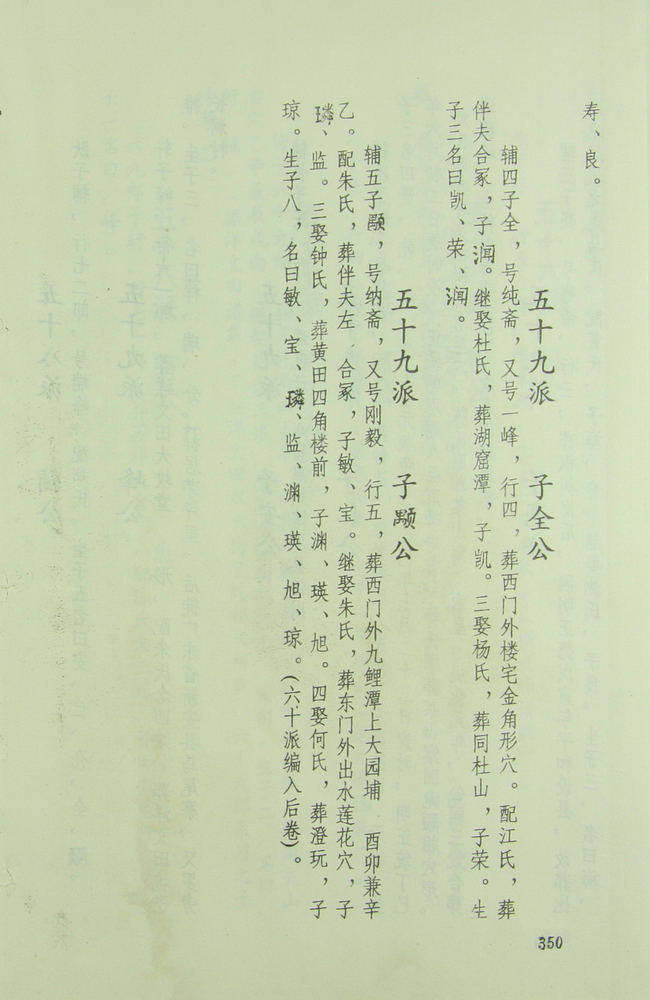 寿、良。
五十九派 子全公
辅四子全，号纯斋，又号一峰，行四，葬西门外楼宅金角形穴。配江氏，葬
伴夫合冢，子润。继娶杜氏，葬湖窟潭，子凯。三娶杨氏，葬同杜山，子荣。生
子三名曰凯、荣、润。
五十九派 子颞公
辅五子颞，号纳斋，又号刚毅，行五，葬西门外九鲤潭上大园埔 酉卯兼辛
乙。配朱氏，葬伴夫左 合冢，子敏、宝。继娶朱氏，葬东门外出水莲花穴，子
璘、监。三娶钟氏，葬黄田四角楼前，子渊、瑛、旭。四娶何氏，葬澄玩，子
琼。生子八，名曰敏、宝、璘、监、渊、瑛、旭、琼。(六十派编入后卷)。
350